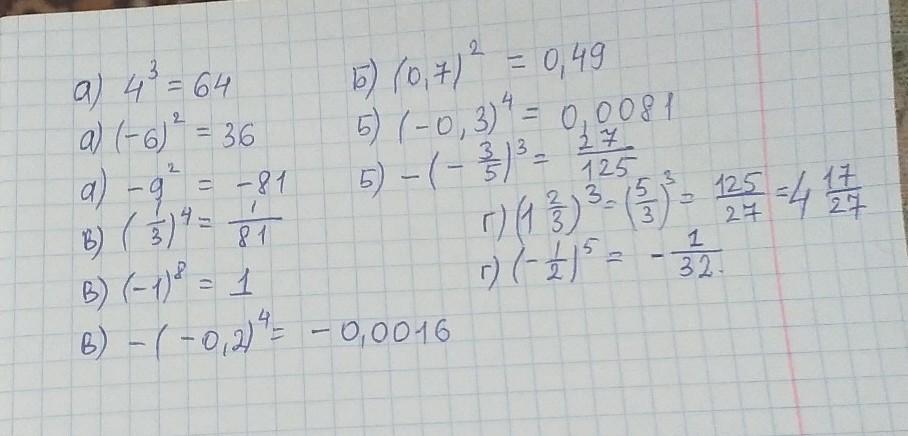 а) 4³ = 64
а) (-6)² = 36
а) -9² = -81
в) (1/3)⁴ = 1/81
в) (-1)⁸ = 1
в) -(-0,2)⁴ = -0,0016
Б) (0,7)² = 0,49
Б) (-0,3)⁴ = 0,0081
Б) -(-3/5)³ = 27/125
г) (1 2/3)³ = (5/3)³ = 125/27 = 4 17/27
г) (-1/2)⁵ = -1/32.